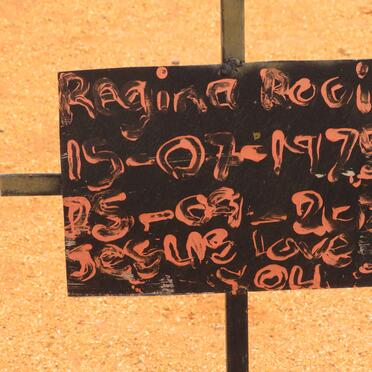 Ragina Roci
15-07-197
05-09-2
Jesus love
you